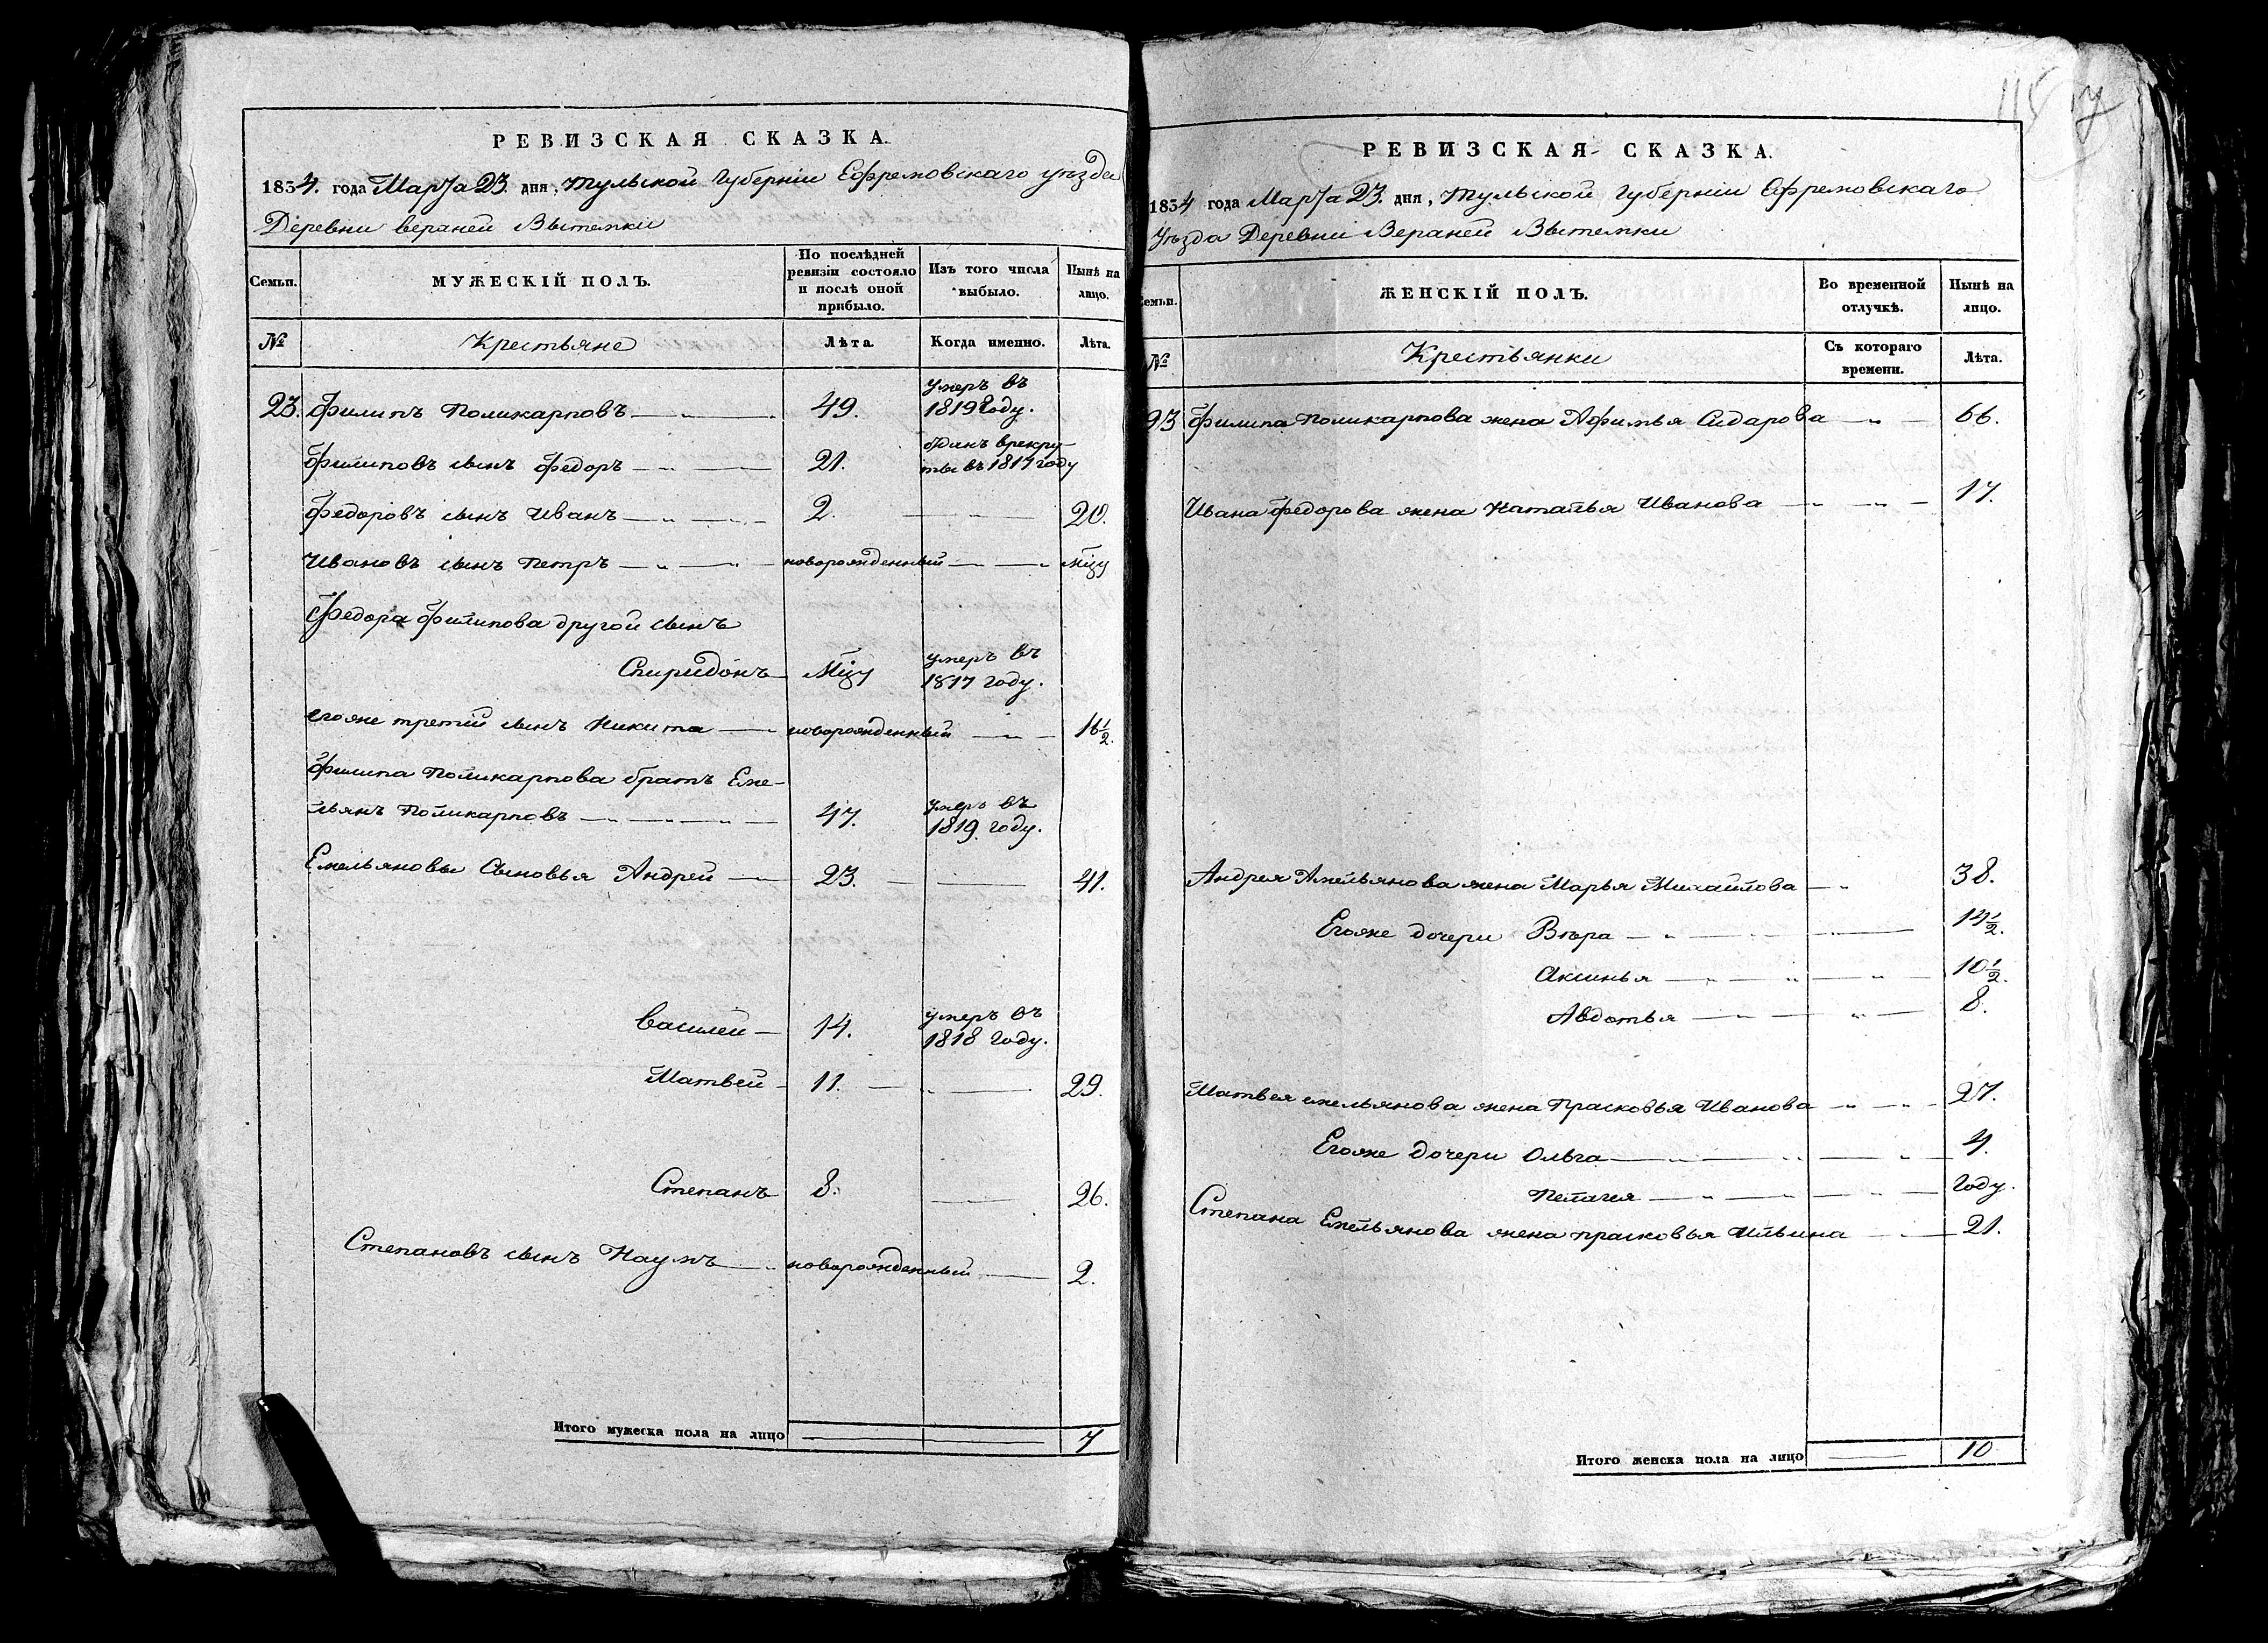 РЕВИЗСКАЯ СКАЗКА.
1834. года Марта 23. дня, Тульской Губерніи Ефремовскаго уѣзда
Деревни верхней Вытемки
Семьи. МУЖЕСКІЙ ПОЛЪ. По послѣдней ревизіи состояло и послѣ оной прибыло. Изъ того числа выбыло. Нынѣ на лицо.
№ Крестьяне Лѣта. Когда именно. Лѣта.
23. Филипъ Поликарповъ 49. умеръ въ 1819 году.
Филиповъ сынъ Федоръ 21. отданъ врекруты въ 1817 году
Федоровъ сынъ Иванъ 2. 20.
Ивановъ сынъ Петръ новорожденный Мцу
Федора Филипова другой сынъ
Спиридонъ Мцу умеръ въ 1817 году.
егоже третій сынъ Никита новорожденный 16 1/2.
Филипа Поликарпова братъ Еме-
льянъ Поликарповъ 47. умеръ въ 1819. году.
Емельяновы Сыновья Андрей 23. 41.
Василей 14. умеръ въ 1818 году.
Матвей 11. 29.
Степанъ 8. 26.
Степановъ сынъ Наумъ новорожденный 2.
Итого мужеска пола на лицо 7
РЕВИЗСКАЯ СКАЗКА.
1834 года Марта 23. дня, Тульской Губерніи Ефремовскаго
уѣзда Деревни Верхней Вытемки
Семьи. ЖЕНСКІЙ ПОЛЪ. Во временной отлучкѣ. Нынѣ на лицо.
№ Крестьянки Съ котораго времени. Лѣта.
23 Филипа Поликарпова жена Афимья Сидарова 66.
Ивана Федорова жена Наталья Иванова 17.
Андрея Амельянова жена Марья Михайлова 38.
Егоже дочери Вѣра 14 1/2.
Аксинья 10 1/2.
Авдотья 8.
Матвея емельянова жена Прасковья Иванова 27.
Егоже дочери Ольга 4.
Пелагея году.
Степана Емельянова жена прасковья Ильина 21.
Итого женска пола на лицо 10